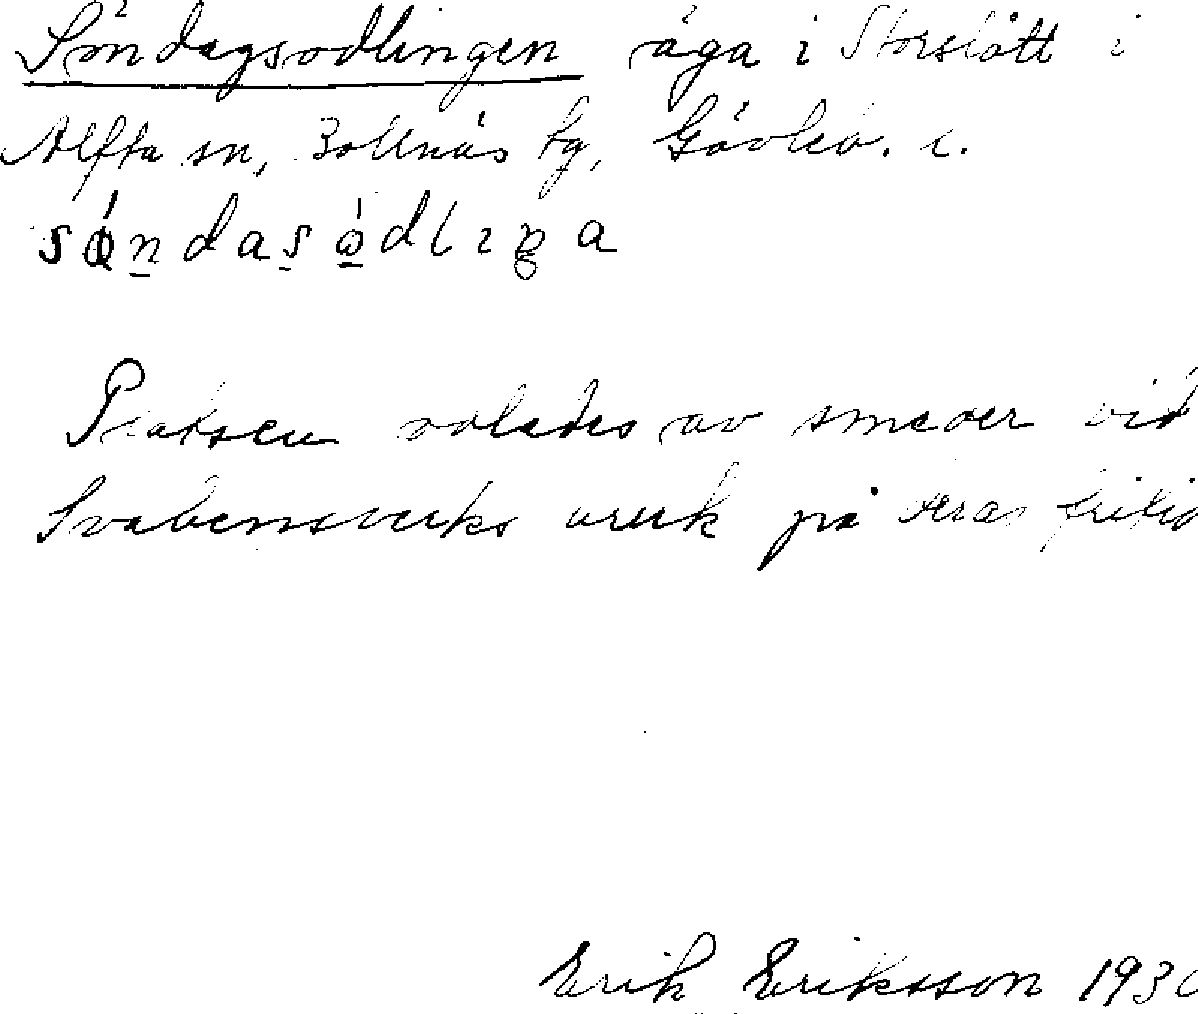 Söndagsodlingen äga i Storslått i
Alfta sn, Bollnäs tg, Gävleb. l.
Platsen odlades av smeder vid
Svabensverks bruk på deras fritid
Erik Eriksson 1930